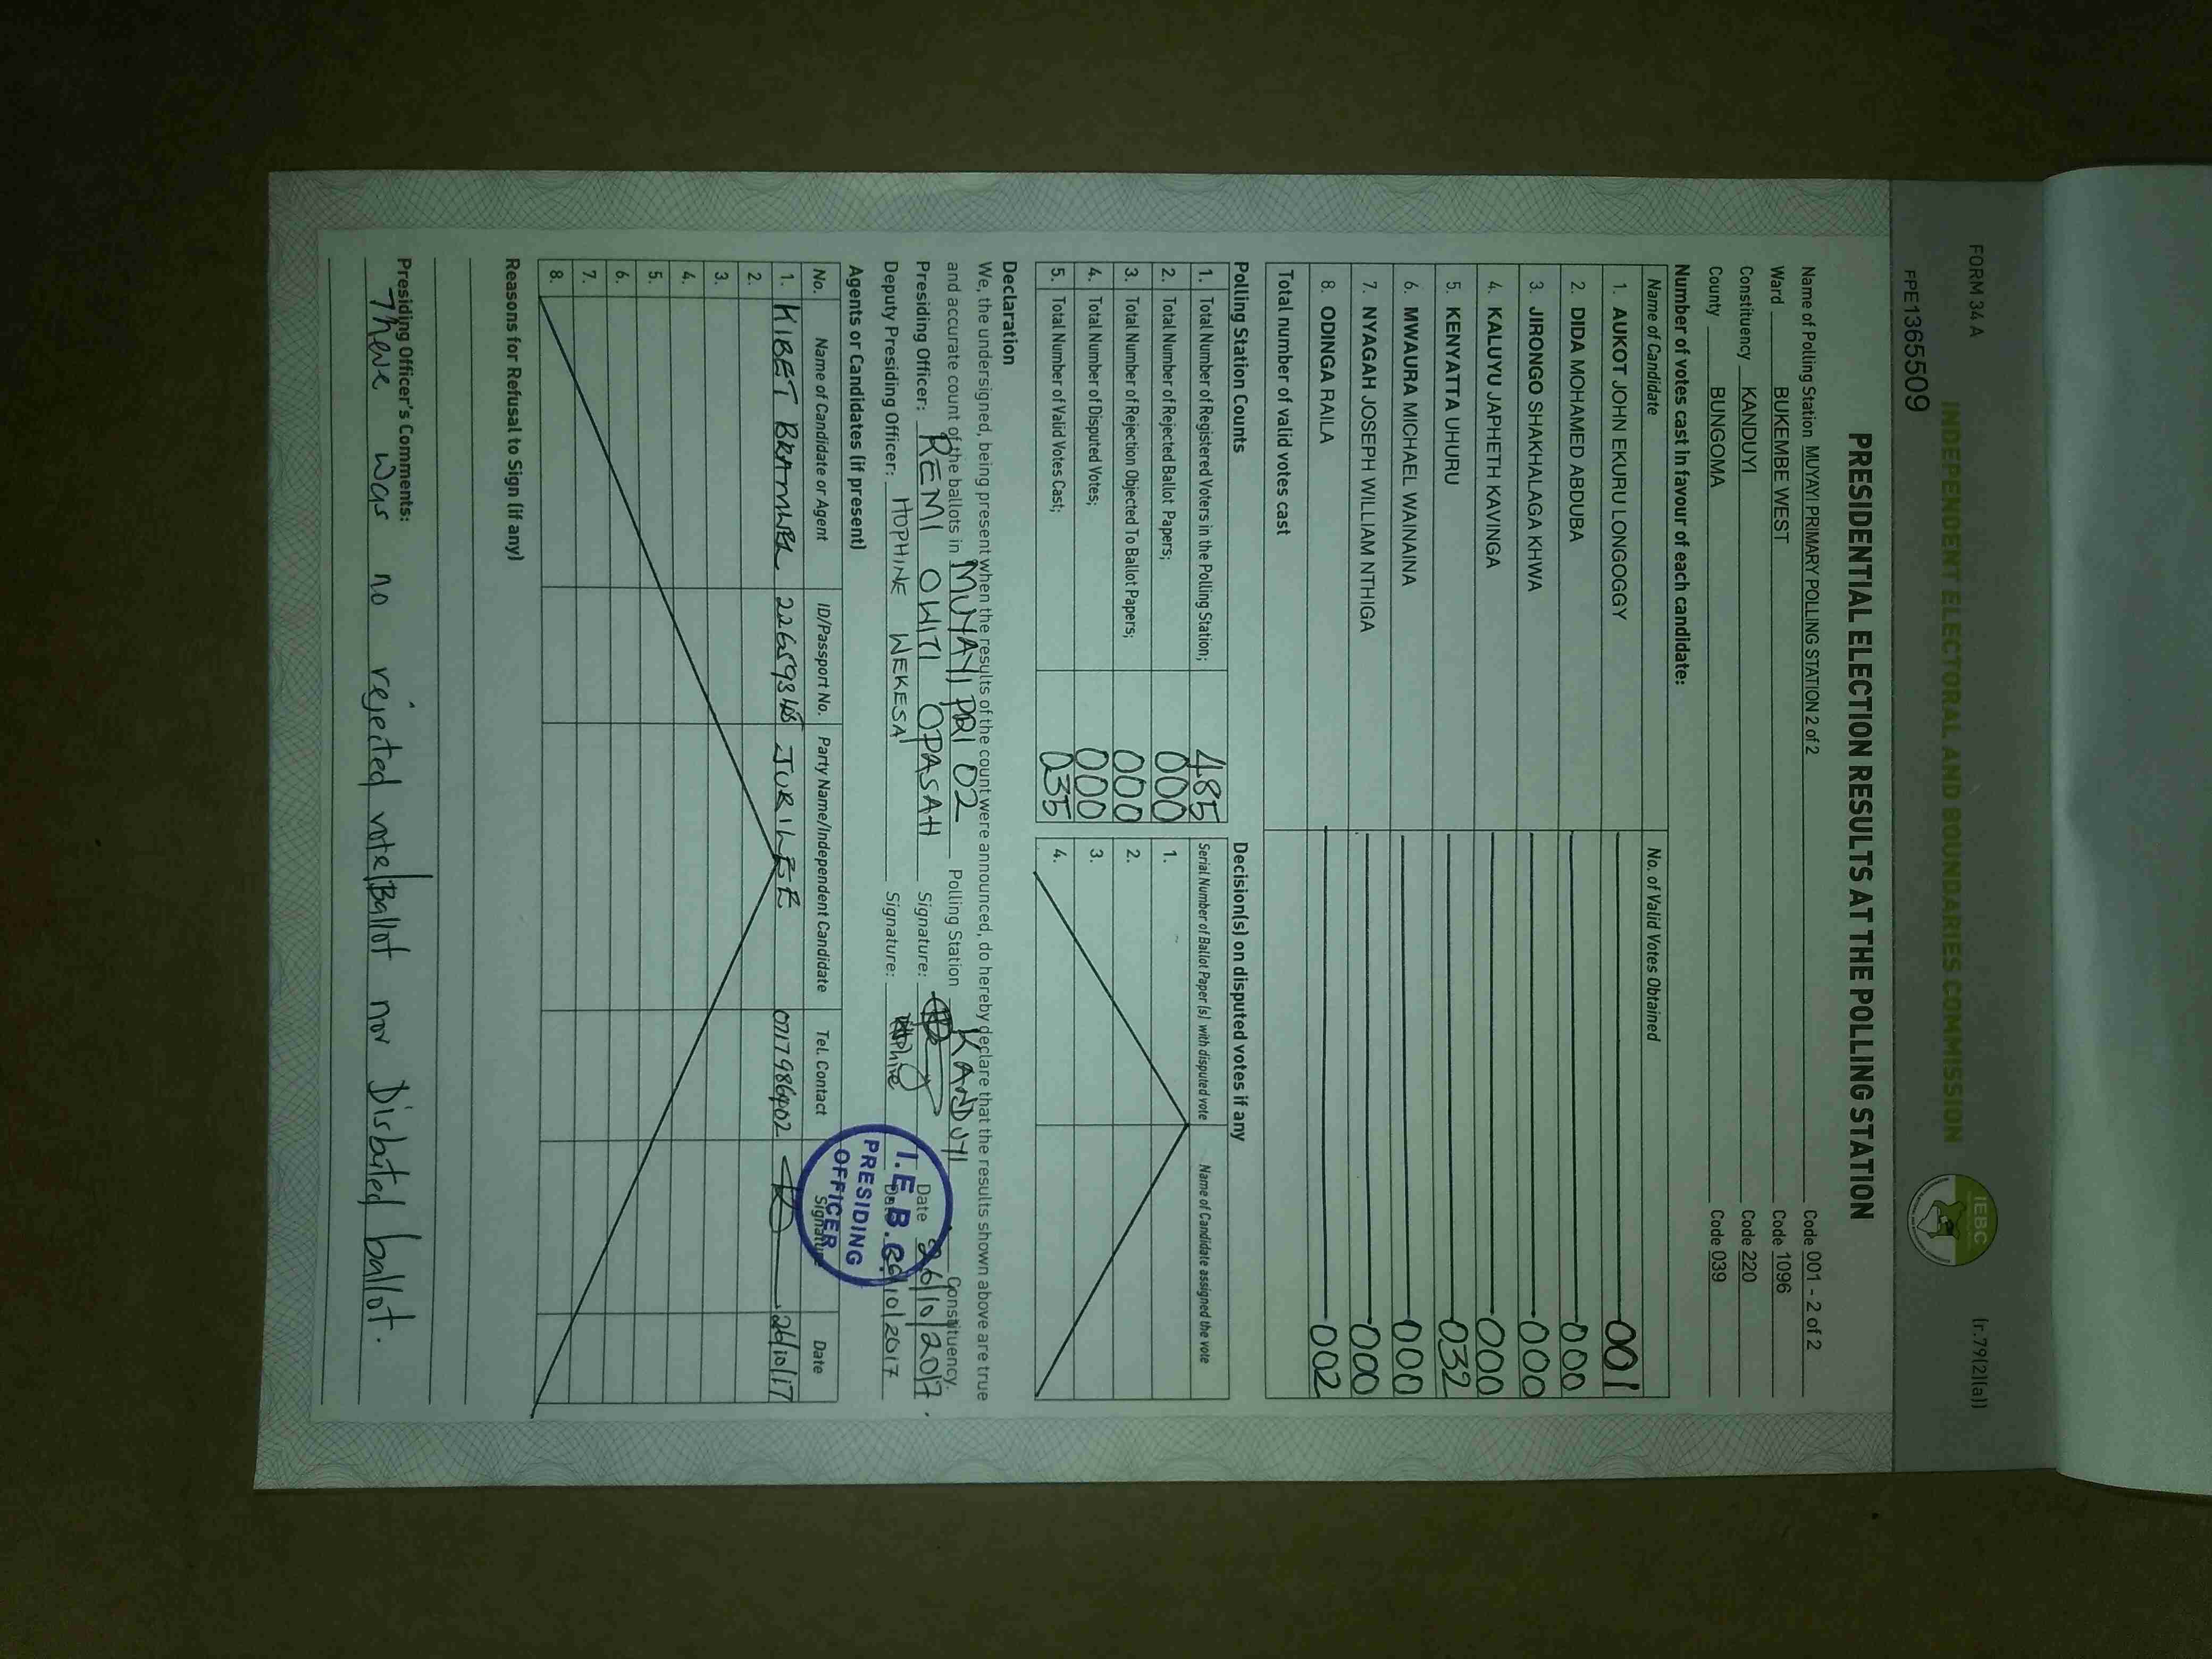 FORM 34 A
(r.79(2)(a))
INDEPENDENT ELECTORAL AND BOUNDARIES COMMISSION
IEBC
PPE1365509
PRESIDENTIAL ELECTION RESULTS AT THE POLLING STATION
Name of Polling Station MUYAYI PRIMARY POLLING STATION 2 of 2 Code 001 - 2 of 2
Ward BUKEMBE WEST Code 1096
Constituency KANDUYI Code 220
County BUNGOMA Code 039
Number of votes cast in favour of each candidate:
Name of Candidate No. of Valid Votes Obtained
1. AUKOT JOHN EKURU LONGOGGY 001
2. DIDA MOHAMED ABDUBA 000
3. JIRONGO SHAKHALAGA KHWA 000
4. KALUYU JAPHETH KAVINGA 000
5. KENYATTA UHURU 032
6. MWAURA MICHAEL WAINAINA 000
7. NYAGAH JOSEPH WILLIAM NTHIGA 000
8. ODINGA RAILA 002
Total number of valid votes cast
Polling Station Counts
1. Total Number of Registered Voters in the Polling Station; 485
2. Total Number of Rejected Ballot Papers; 000
3. Total Number of Rejection Objected To Ballot Papers; 000
4. Total Number of Disputed Votes; 000
5. Total Number of Valid Votes Cast; 035
Decision(s) on disputed votes if any
Serial Number of Ballot Paper(s) with disputed vote Name of Candidate assigned the vote
1.
2.
3.
4.
Declaration
We, the undersigned, being present when the results of the count were announced, do hereby declare that the results shown above are true
and accurate count of the ballots in MUYAYI PRI 02 Polling Station KANDUYI Constituency.
Presiding Officer: REMI OWITI OPASAH Signature: Date 26/10/2017.
Deputy Presiding Officer: HOPHINE WEKESA Signature: Date 26/10/2017
I.E.B.C.
PRESIDING
OFFICER
Agents or Candidates (if present)
No. Name of Candidate or Agent ID/Passport No. Party Name/Independent Candidate Tel. Contact Signature Date
1. KIBET BRAMWEL JUBILEE 26/10/17
2.
3.
4.
5.
6.
7.
8.
Reasons for Refusal to Sign (if any)
Presiding Officer's Comments:
There was no rejected vote/Ballot nor Disbuted ballot.